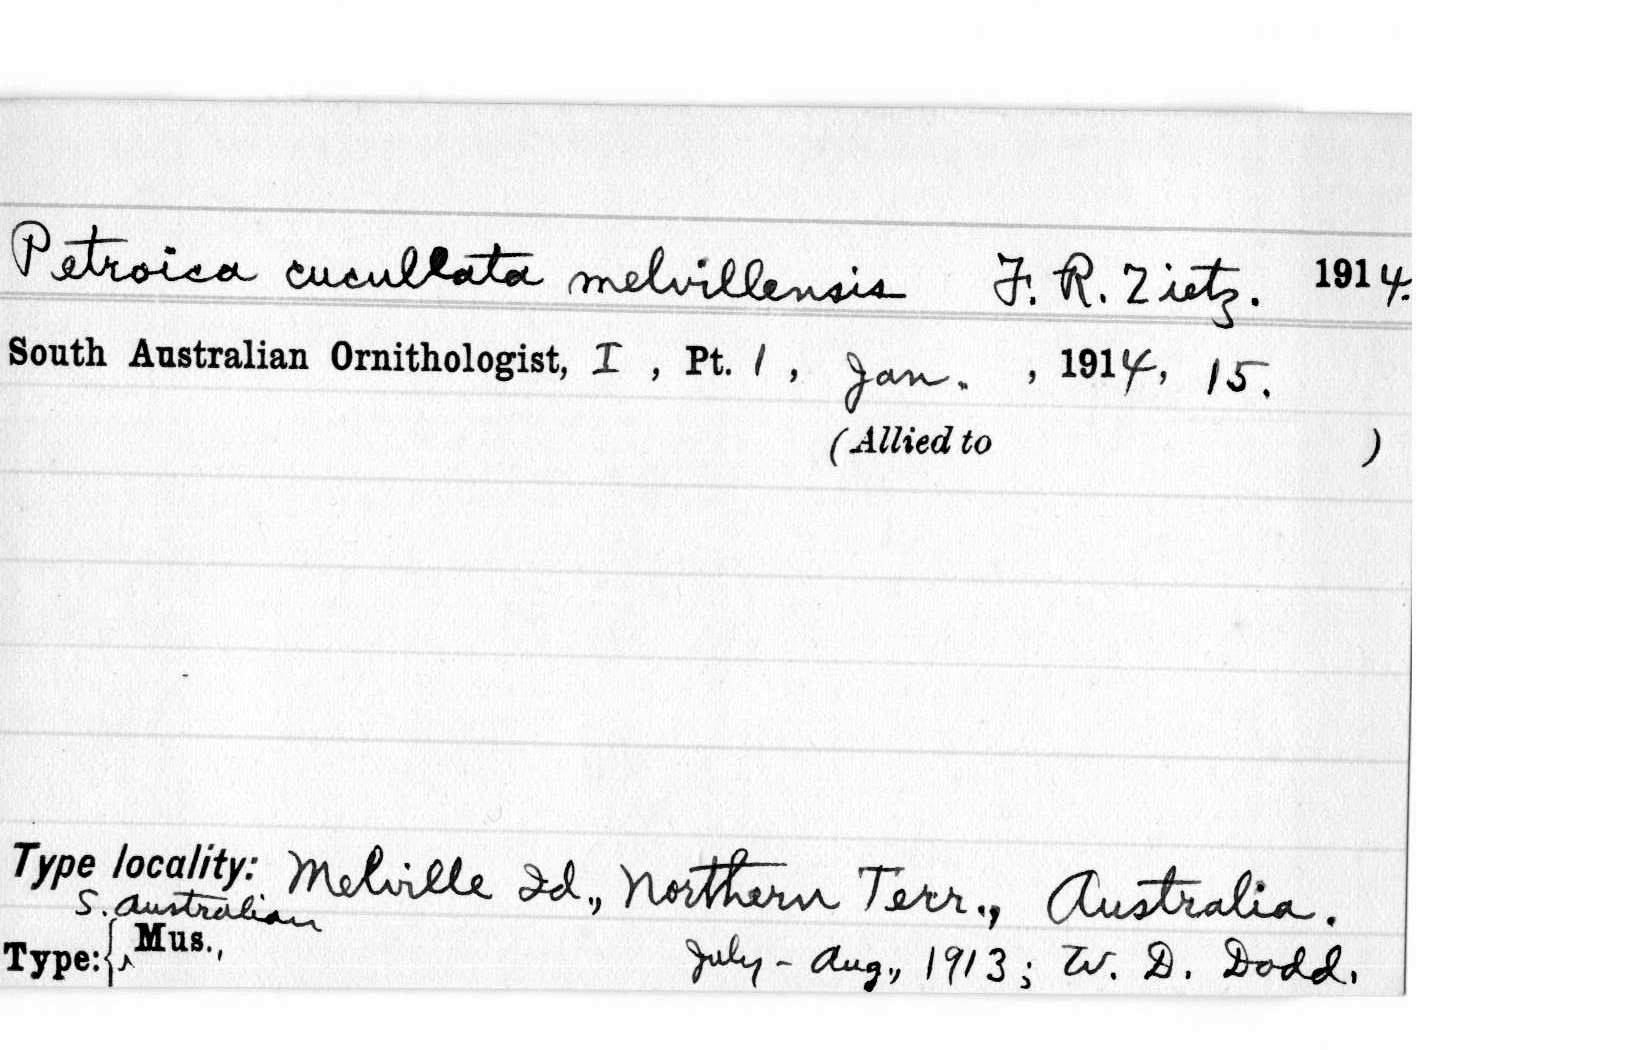 Petroica cucullata melvillensis F. R. Zietz. 1914.
South Australian Ornithologist, I, Pt. 1, Jan., 1914, 15.
(Allied to )
Type locality: Melville Id., Northern Terr., Australia.
S. Australian
Type: { ^ Mus., July - Aug., 1913; W. D. Dodd.